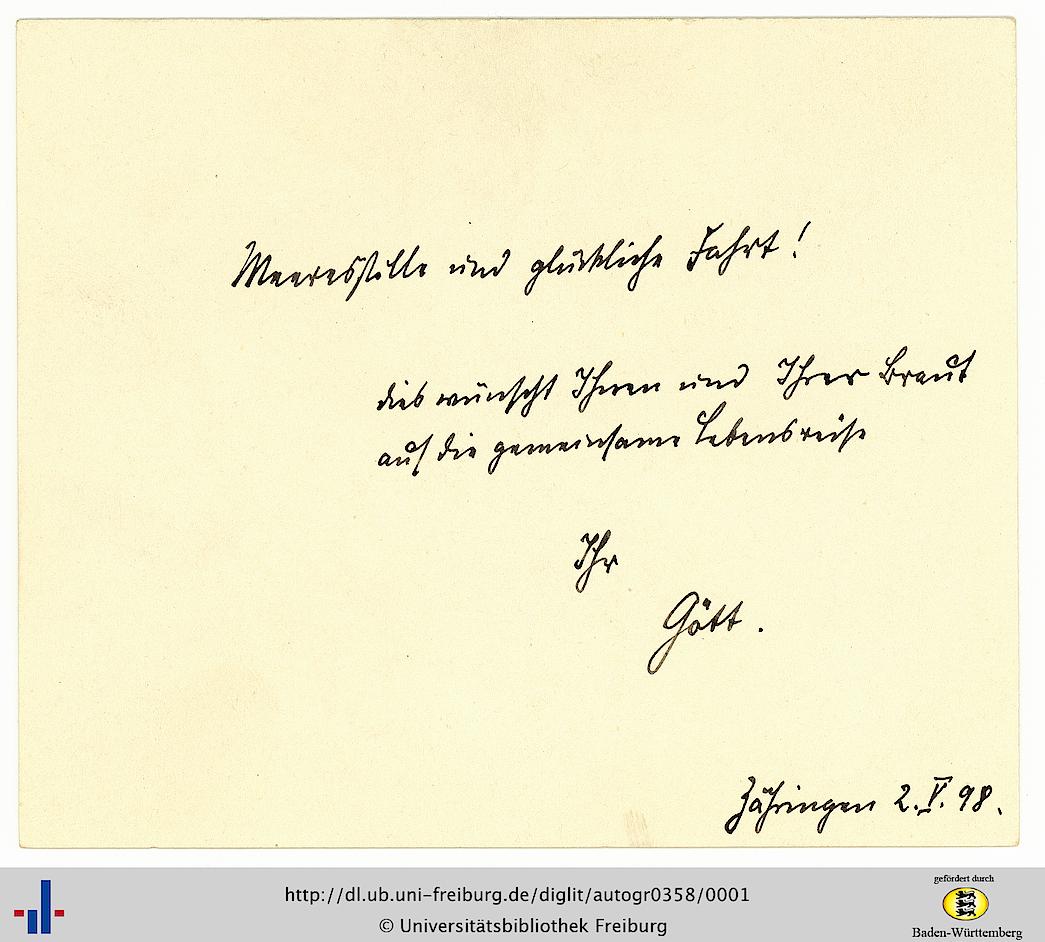 Meeresstille und glückliche Fahrt!
dies wünscht Ihnen und Ihrer Braut
auf die gemeinsame Lebensreise
Ihr
Gött.
Zähringen 2. V. 98.
http://dl.ub.uni-freiburg.de/diglit/autogr0358/0001
© Universitätsbibliothek Freiburg
gefördert durch
Baden-Württemberg